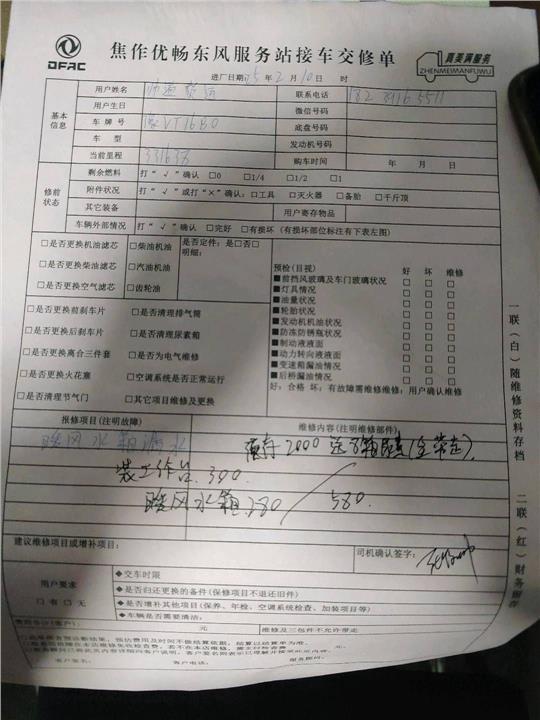 DFAC
焦作优畅东风服务站接车交修单
真美满服务
ZHENMEIMANFUWU
进厂日期 25 年 2 月 10 日 时
基本信息
用户姓名
联系电话
用户生日
微信号码
车牌号
底盘号码
车型
发动机号码
当前里程 331638
购车时间 年 月 日
修前状态
剩余燃料 打“√”确认 □0 □1/4 □1/2 □1
附件状况 打“√”或打“×”确认:□工具 □灭火器 □备胎 □千斤顶
其它装备
用户寄存物品
车辆外部情况 打“√”确认 □完好 □有损坏(有损坏部位标注有下表左图)
□是否更换机油滤芯 □柴油机油 是否定件:是□否□
□是否更换柴油滤芯 □汽油机油 明细:
□是否更换空气滤芯 □齿轮油
□是否更换前刹车片 □是否清理排气筒
□是否更换后刹车片 □是否清理尿素箱
□是否更换离合三件套 □是否为电气维修
□是否更换火花塞 □空调系统是否正常运行
□是否清理节气门 □其它项目维修及更换
预检(目视) 好 坏 维修
■前挡风玻璃及车门玻璃状况 □ □ □
■灯具情况 □ □ □
■油量状况 □ □ □
■轮胎状况 □ □ □
■发动机机油状况 □ □ □
■防冻防锈瓶状况 □ □ □
■制动液液面 □ □ □
■动力转向液液面 □ □ □
■变速箱漏油情况 □ □ □
■后桥漏油情况 □ □ □
好:合格 坏:有故障需维修维修:用户确认维修
报修项目(注明故障)
维修内容(注明维修部件)
暖风水箱漏水
装工作台.300
暖风水箱280 580.
建议维修项目或增补项目:
司机确认签字:
用户要求
□有□无
◆交车时限
◆是否归还更换的备件(保修项目不退还旧件)
◆是否增补其他项目(保养、年检、空调系统检查、加装项目等)
◆车辆是否需要清洁:
元
维修及三包件不允许带走
客户签名: 客户电话: 服务顾问:
一联(白)随维修资料存档
二联(红)财务留存